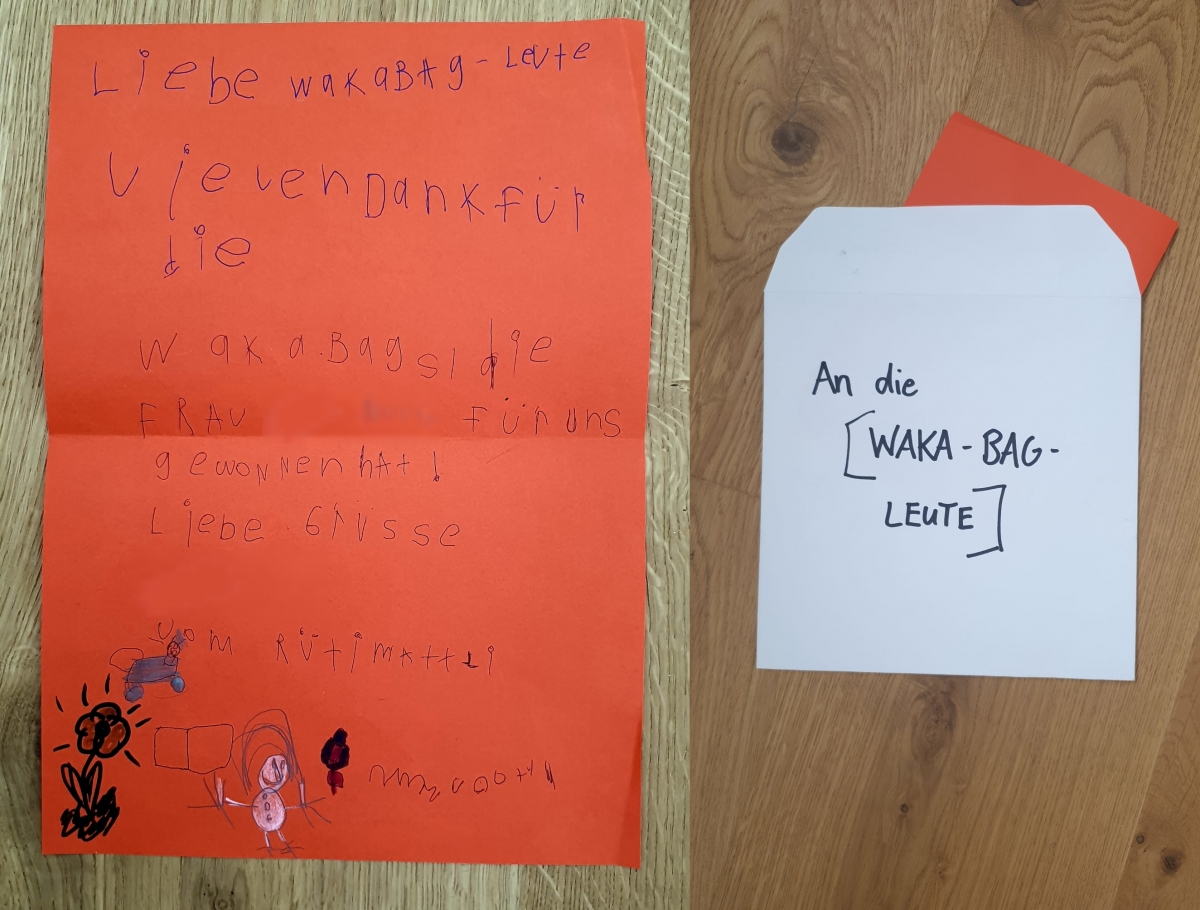 Liebe wakaBAg-Leute
VielenDankFür
die
WakaBags, die
FRAU FÜR uns
gewoNNen hAt!
Liebe Grüsse
vom RÜtimattli
An die
[WAKA-BAG-
LEUTE]